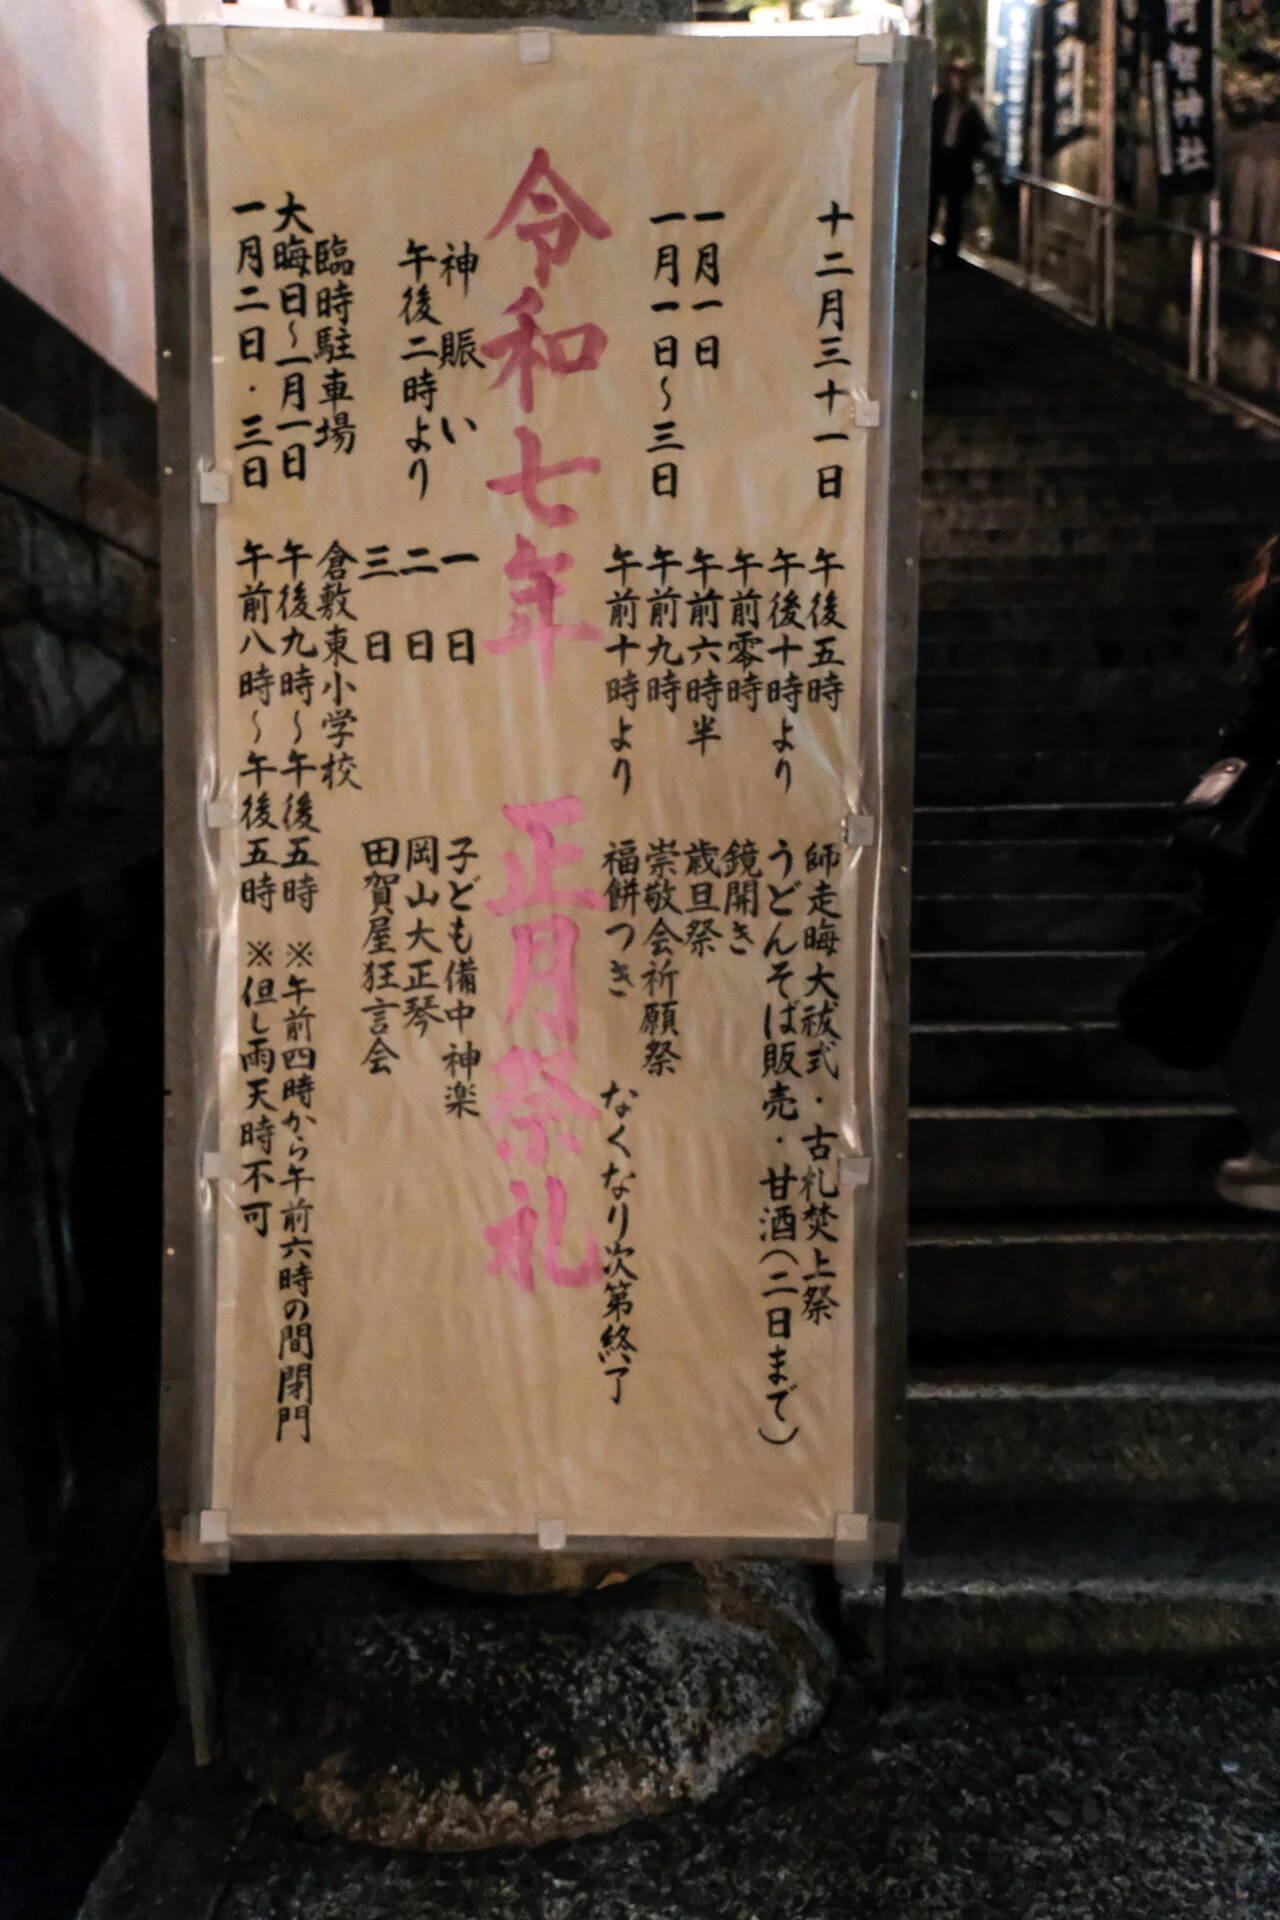 十二月三十一日 午後五時 師走晦大祓式・古札焚上祭
午後十時より うどんそば販売・甘酒（二日まで）
午前零時 鏡開き
一月一日 午前六時半 歳旦祭
一月一日～三日 午前九時 崇敬会祈願祭
午前十時より 福餅つき なくなり次第終了
令和七年 正月祭礼
神賑い 一日 子ども備中神楽
午後二時より 二日 岡山大正琴
三日 田賀屋狂言会
臨時駐車場 倉敷東小学校
大晦日～一月一日 午後九時～午後五時 ※午前四時から午前六時の間閉門
一月二日・三日 午前八時～午後五時 ※但し雨天時不可
宮神社